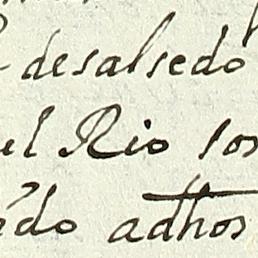 desalsedo
el Rio sos
do adhos